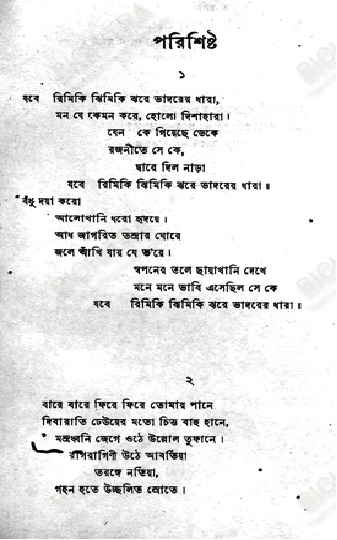 পরিশিষ্ট
১
যবে রিমিকি ঝিমিকি ঝরে ভাদরের ধারা,
মন যে কেমন করে, হোলো দিশাহারা।
যেন কে গিয়েছে ডেকে
রজনীতে সে কে,
দ্বারে দিল নাড়া
যবে রিমিকি ঝিমিকি ঝরে ভাদরের ধারা॥
বঁধু দয়া করো
আলোখানি ধরো হৃদয়ে।
আধ জাগরিত তন্দ্রার ঘোরে
জলে আঁখি যায় যে ভ'রে।
স্বপনের তলে ছায়াখানি দেখে
মনে মনে ভাবি এসেছিল সে কে
যবে রিমিকি ঝিমিকি ঝরে ভাদরের ধারা॥
২
বারে বারে ফিরে ফিরে তোমার পানে
দিবারাতি ঢেউয়ের মতো চিত্ত বাহু হানে,
মন্দ্রধ্বনি জেগে ওঠে উল্লোল তুফানে।
রাগরাগিণী উঠে আবর্তিয়া
তরঙ্গে নর্তিয়া,
গহন হতে উচ্ছলিত স্রোতে।